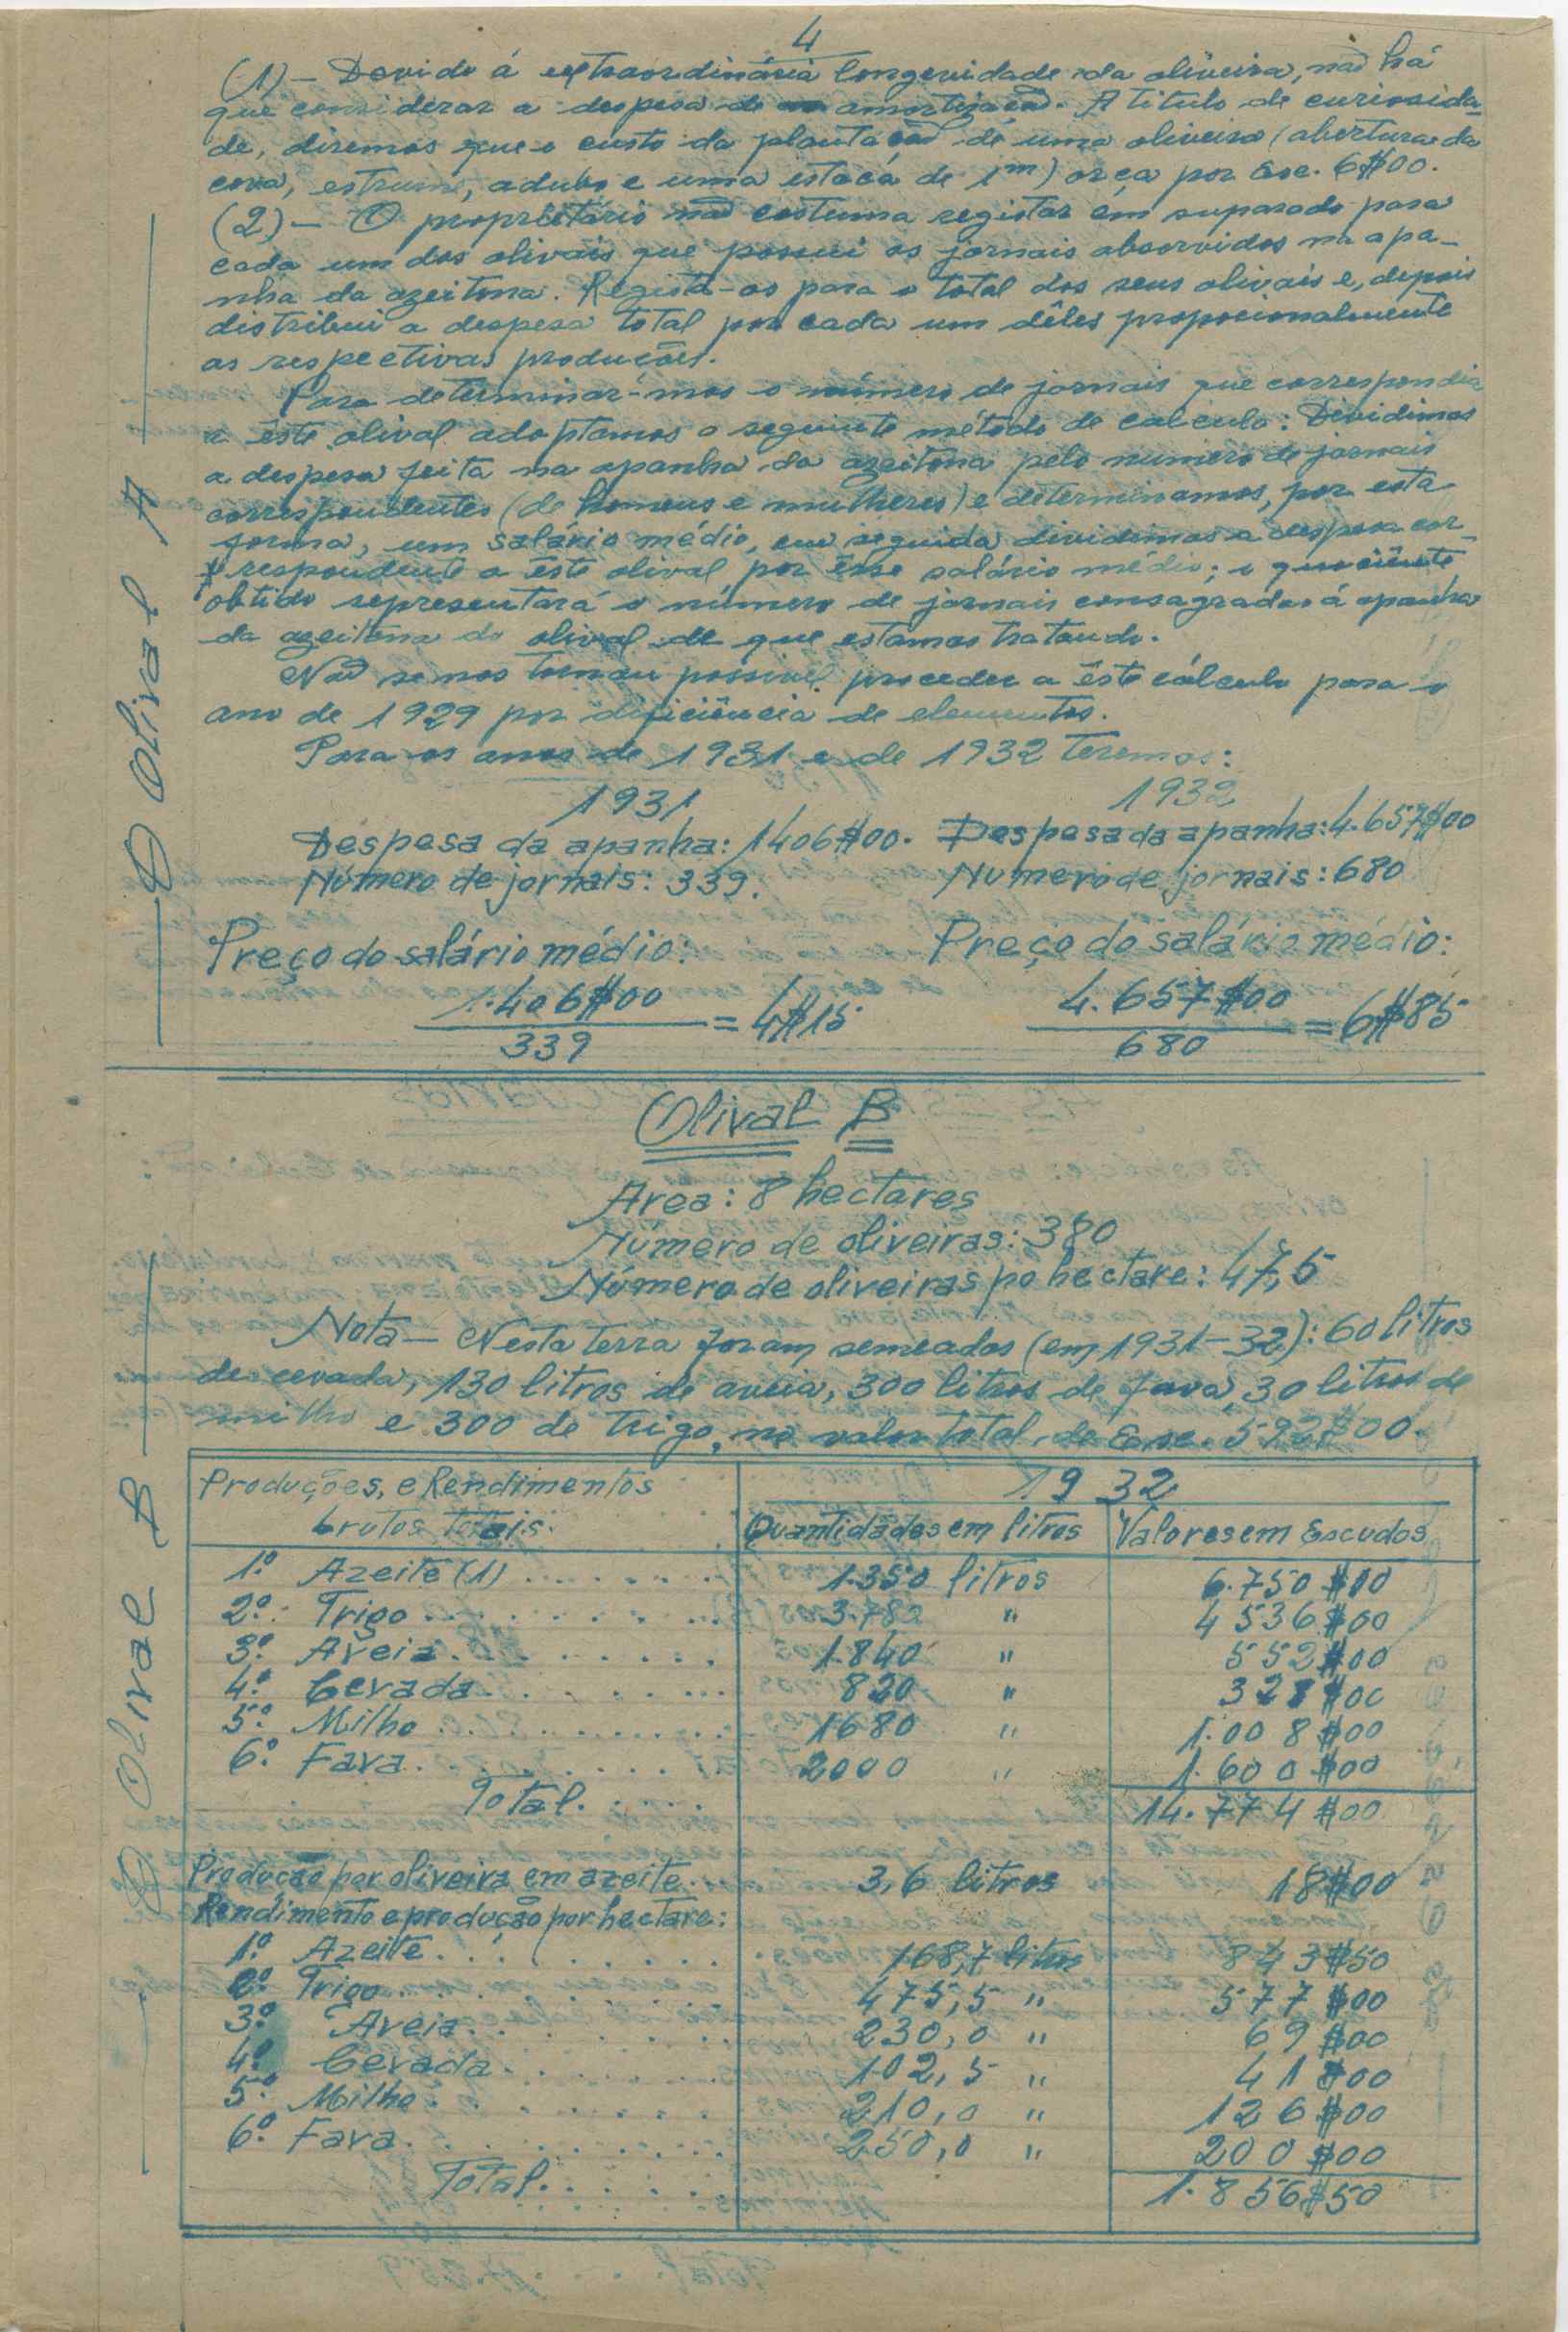 4
(1) — Devido á extraordinária longevidade da oliveira, não há
que considerar a despesa de amortização. A titulo de curiosida-
de, diremos que o custo da plantação de uma oliveira (abertura da
cova, estrume, adubo e uma estaca de 1m) orça por Esc. 6$00.
(2) — O proprietário não costuma registar em separado para
cada um dos olivais que possui os jornais absorvidos na apa-
nha da azeitona. Regista-os para o total dos seus olivais e, depois
distribui a despesa total por cada um dêles propocionalmente
as respectivas produções.
Para determinar-mos o número de jornais que correspondia
a êste olival adoptamos o seguinte método de calculo: Dividimos
a despesa feita na apanha da azeitona pelo numero de jornais
correspondentes (de homens e mulheres) e determinamos, por esta
forma, um salário médio, em seguida dividimos a despesa cor-
respondente a êste olival por êsse salário médio; o quociente
obtido representará o número de jornais consagrados á apanha
da azeitona do olival de que estamos tratando.
Não se nos tornou possivel proceder a êste cálculo para o
ano de 1929 por deficiência de elementos.
Para os anos de 1931 e de 1932 teremos:
1931 1932
Despesa da apanha: 1406$00. Despesa da apanha: 4.657$00
Número de jornais: 339. Numero de jornais: 680
Preço do salário médio: Preço do salário médio:
1.406$00 / 339 = 4$15 4.657$00 / 680 = 6$85
Olival A
Olival B
Area: 8 hectares
Número de oliveiras: 380
Número de oliveiras po hectare: 47,5
Nota — Nesta terra foram semeados (em 1931-32): 60 litros
de cevada, 130 litros de aveia, 300 litros de fava, 30 litros de
milho e 300 de trigo, no valor total de Esc. 592$00.
Olival B
Produções, e Rendimentos 1932
brutos totais. Quantidades em litros Valores em Escudos
1.º Azeite (1) . . . . . . . 1.350 litros 6.750$00
2.º Trigo . . . . . . . . . 3.780 " 4536$00
3.º Aveia . . . . . . . . 1.840 " 552$00
4.º Cevada . . . . . . . . 820 " 328$00
5.º Milho . . . . . . . . . 1680 " 1.008$00
6.º Fava . . . . . . . . 2000 " 1.600$00
Total . . . . . 14.774$00
Produção por oliveira em azeite. 3,6 litros 18$00
Rendimento e produção por hectare:
1.º Azeite . . . . . . . . 168,7 litros 843$50
2.º Trigo . . . . . . . . . 475,5 " 577$00
3.º Aveia . . . . . . . . 230,0 " 69$00
4.º Cevada . . . . . . . 102,5 " 41$00
5.º Milho . . . . . . . . 210,0 " 126$00
6.º Fava . . . . . . . . . 250,0 " 200$00
Total . . . . . . 1.856$50